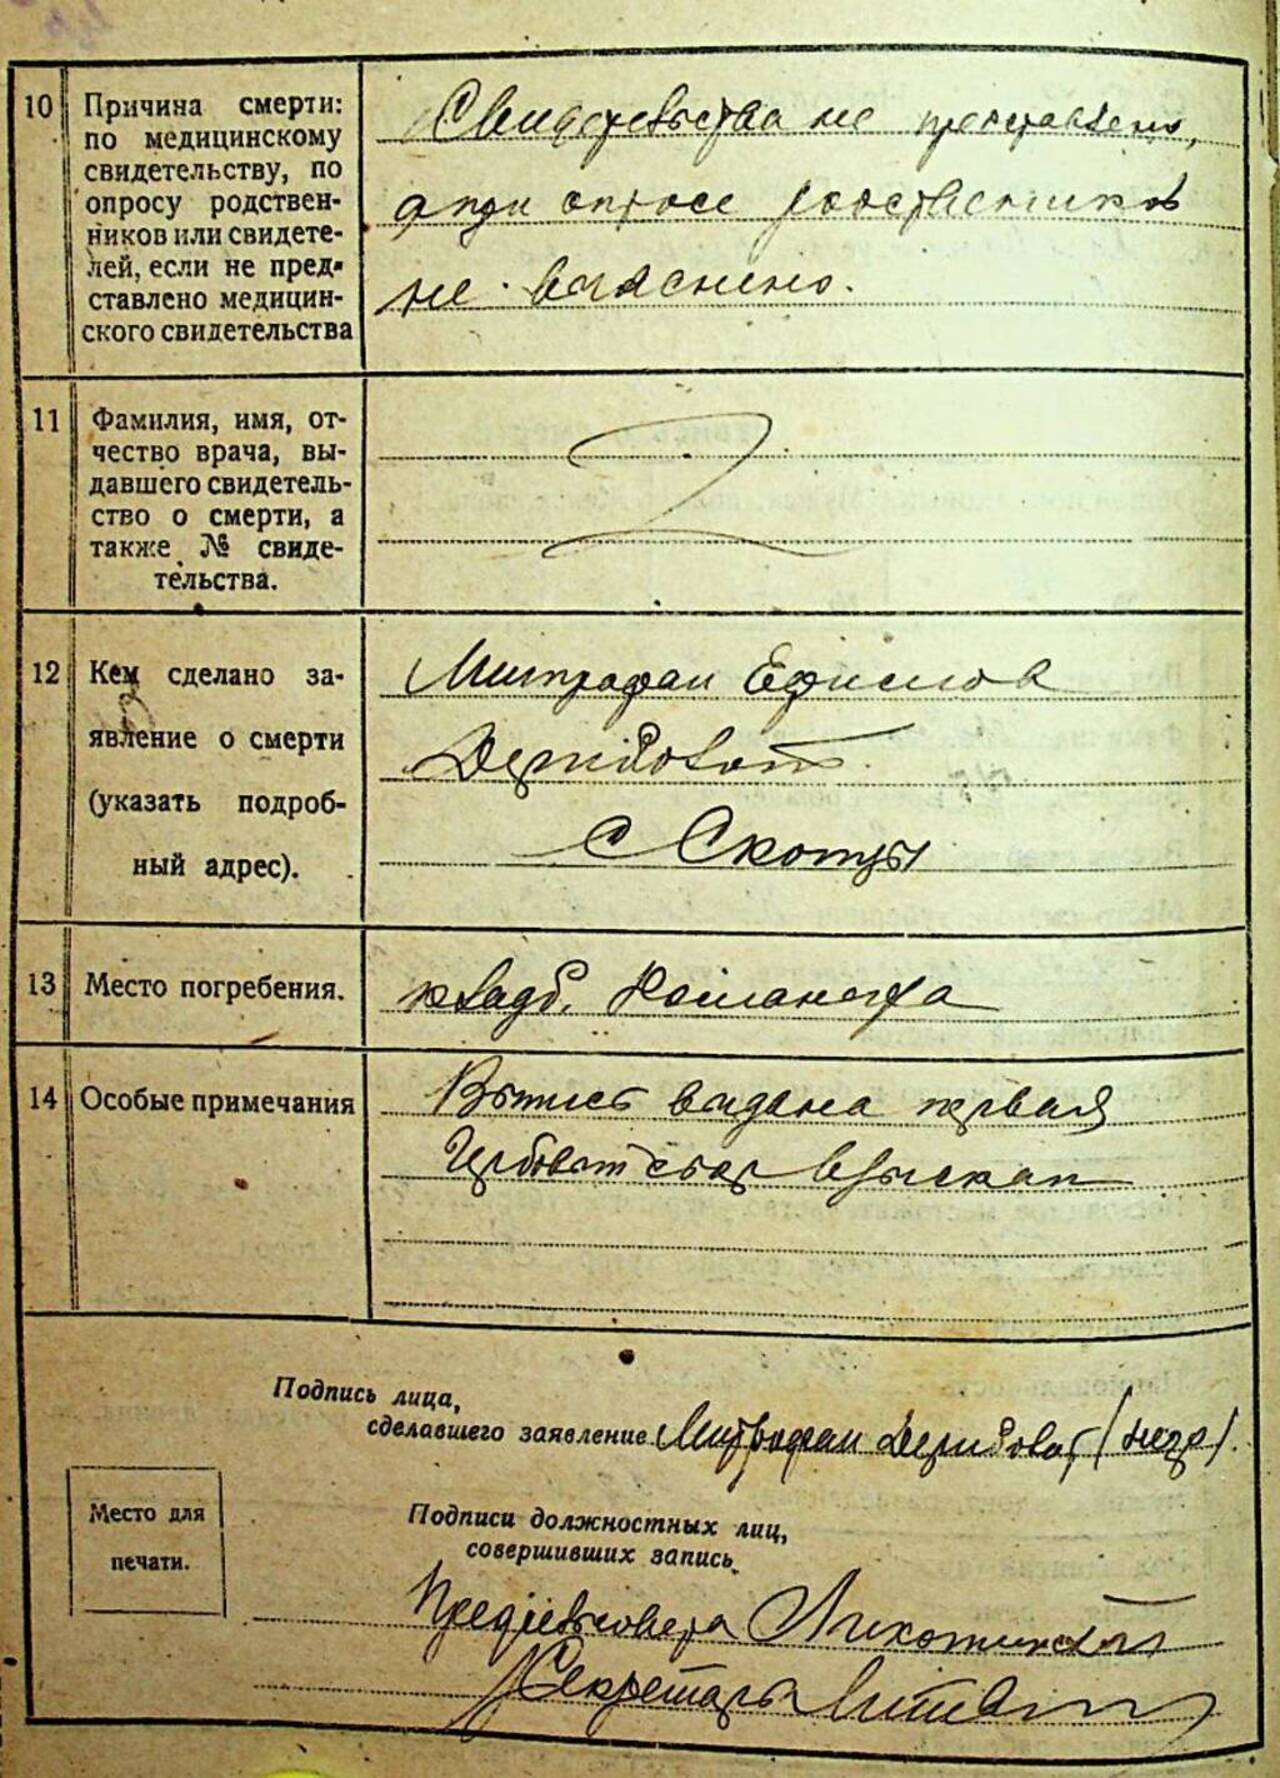 10 Причина смерти:
по медицинскому
свидетельству, по
опросу родствен-
ников или свидете-
лей, если не пред-
ставлено медицин-
ского свидетельства
Свидетельства не представлено,
а при опросе родственников
не выяснено.
11 Фамилия, имя, от-
чество врача, вы-
давшего свидетель-
ство о смерти, а
также № свиде-
тельства.
12 Кем сделано за-
явление о смерти
(указать подроб-
ный адрес).
Митрофан Ефимов
с Скотцы
13 Место погребения.
кладб.
14 Особые примечания
Выпись выдана первая
взыскан
Подпись лица,
сделавшего заявление Митрофан
Место для
печати.
Подписи должностных лиц,
совершивших запись.
Предсельсовета
Секретарь